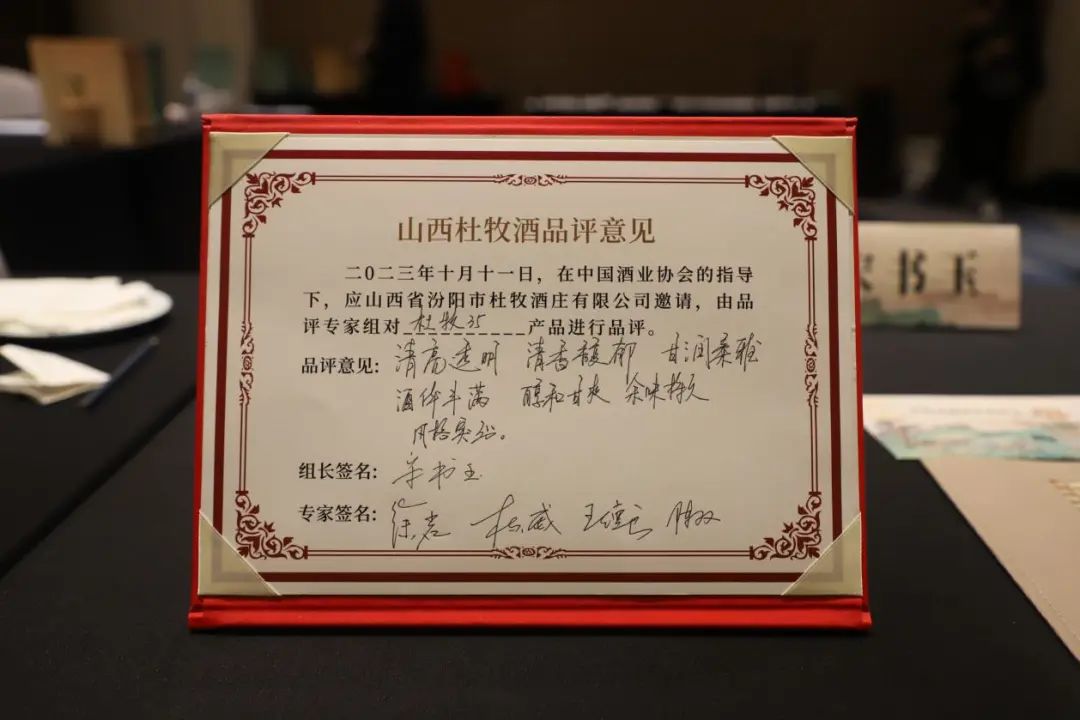 山西杜牧酒品评意见
二〇二三年十月十一日，在中国酒业协会的指导
下，应山西省汾阳市杜牧酒庄有限公司邀请，由品
评专家组对 杜牧35 产品进行品评。
品评意见: 清亮透明 清香馥郁 甘润柔雅
酒体丰满 醇和甘爽 余味悠久
风格突出。
组长签名: 宋书玉
专家签名: 徐岩 杜威
书玉